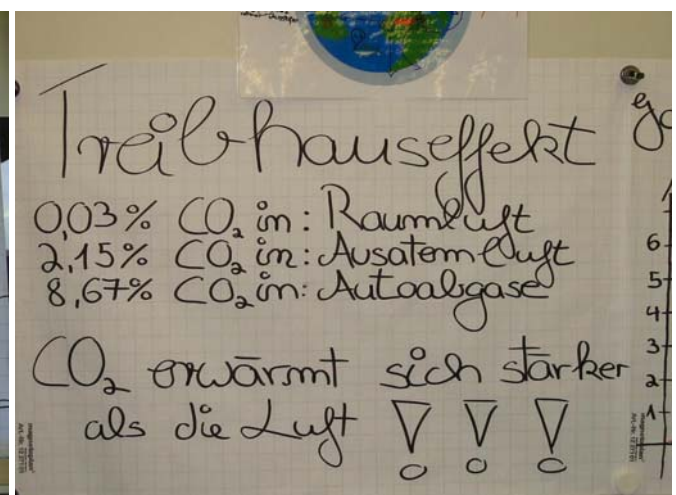 Treibhauseffekt
0,03% CO₂ in: Raumluft
2,15% CO₂ in: Ausatemluft
8,67% CO₂ in: Autoabgase
CO₂ erwärmt sich stärker
als die Luft !!!
6
5
4
3
2
1
magnetoplan